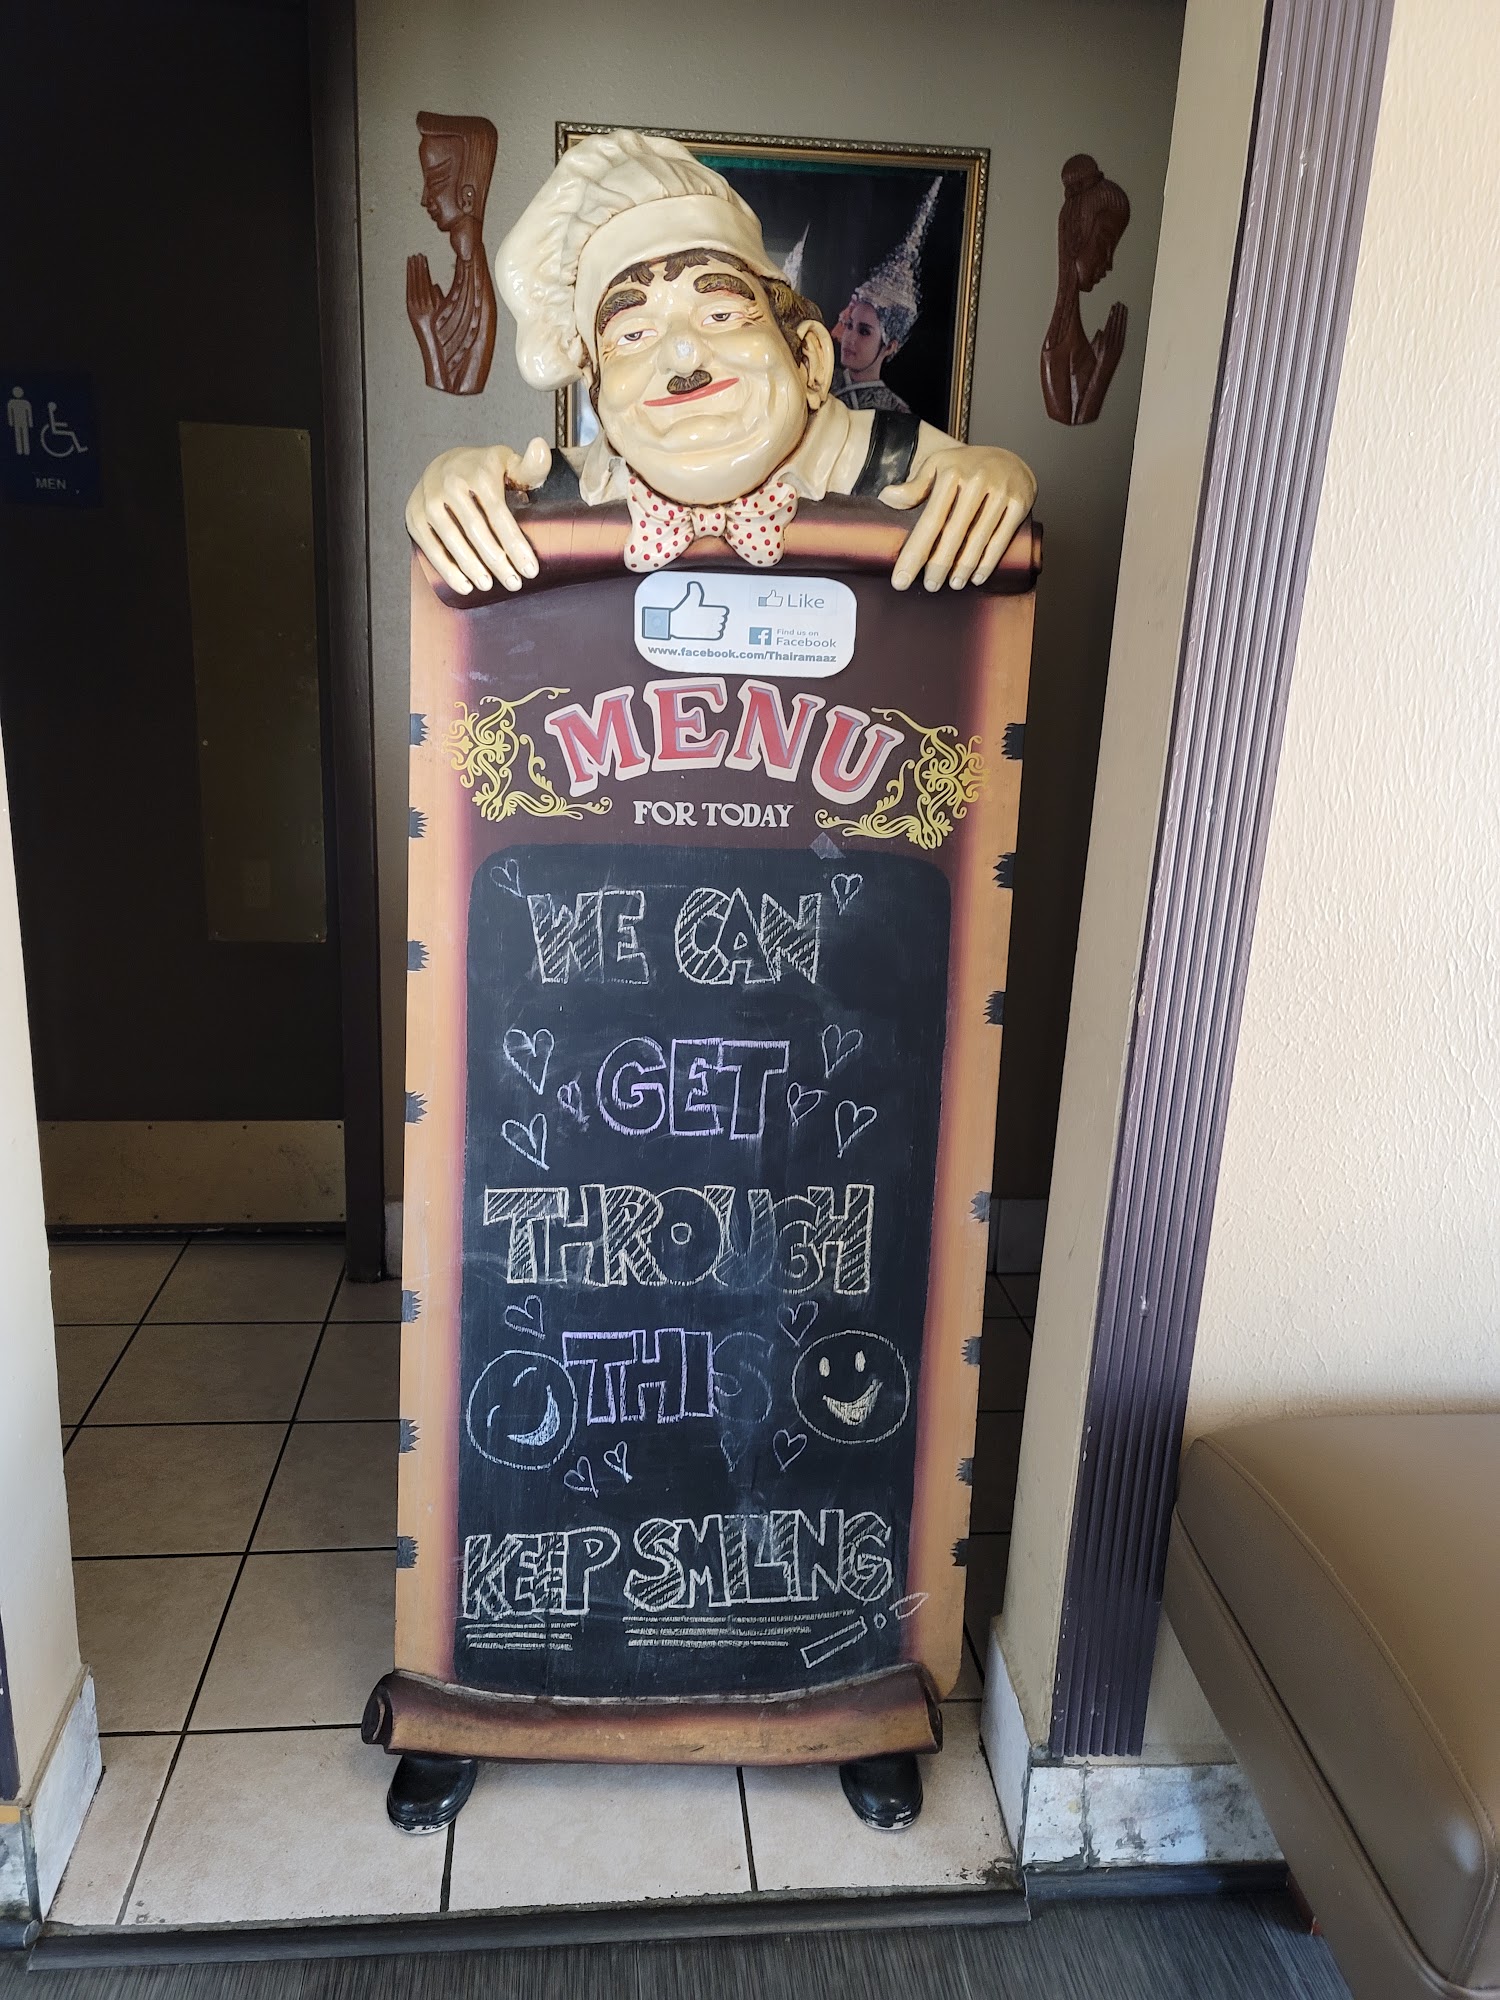 MEN
Like
f Find us on
Facebook
www.facebook.com/Thairamaaz
MENU
FOR TODAY
WE CAN
GET
THROUGH
THIS
KEEP SMILING